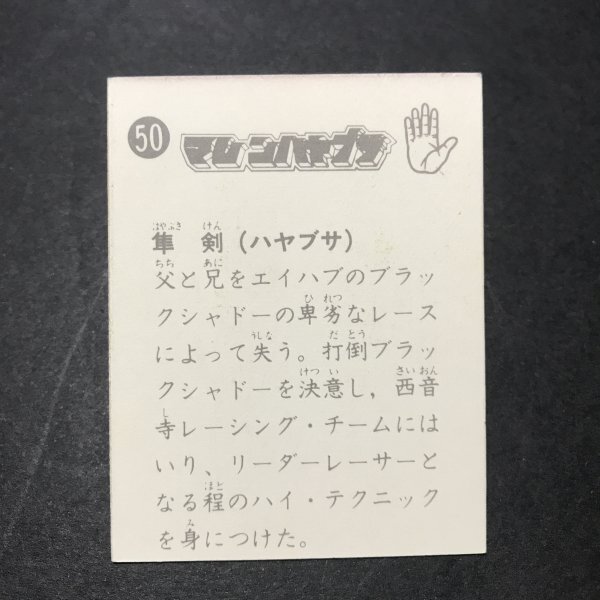 50
マシンハヤブサ
はやぶさ けん
隼 剣(ハヤブサ)
ちち あに
父と兄をエイハブのブラッ
ひ れつ
クシャドーの卑劣なレース
うしな だ とう
によって失う。打倒ブラッ
けつ い さい おん
クシャドーを決意し,西音
じ
寺レーシング・チームには
いり、リーダーレーサーと
ほど
なる程のハイ・テクニック
み
を身につけた。